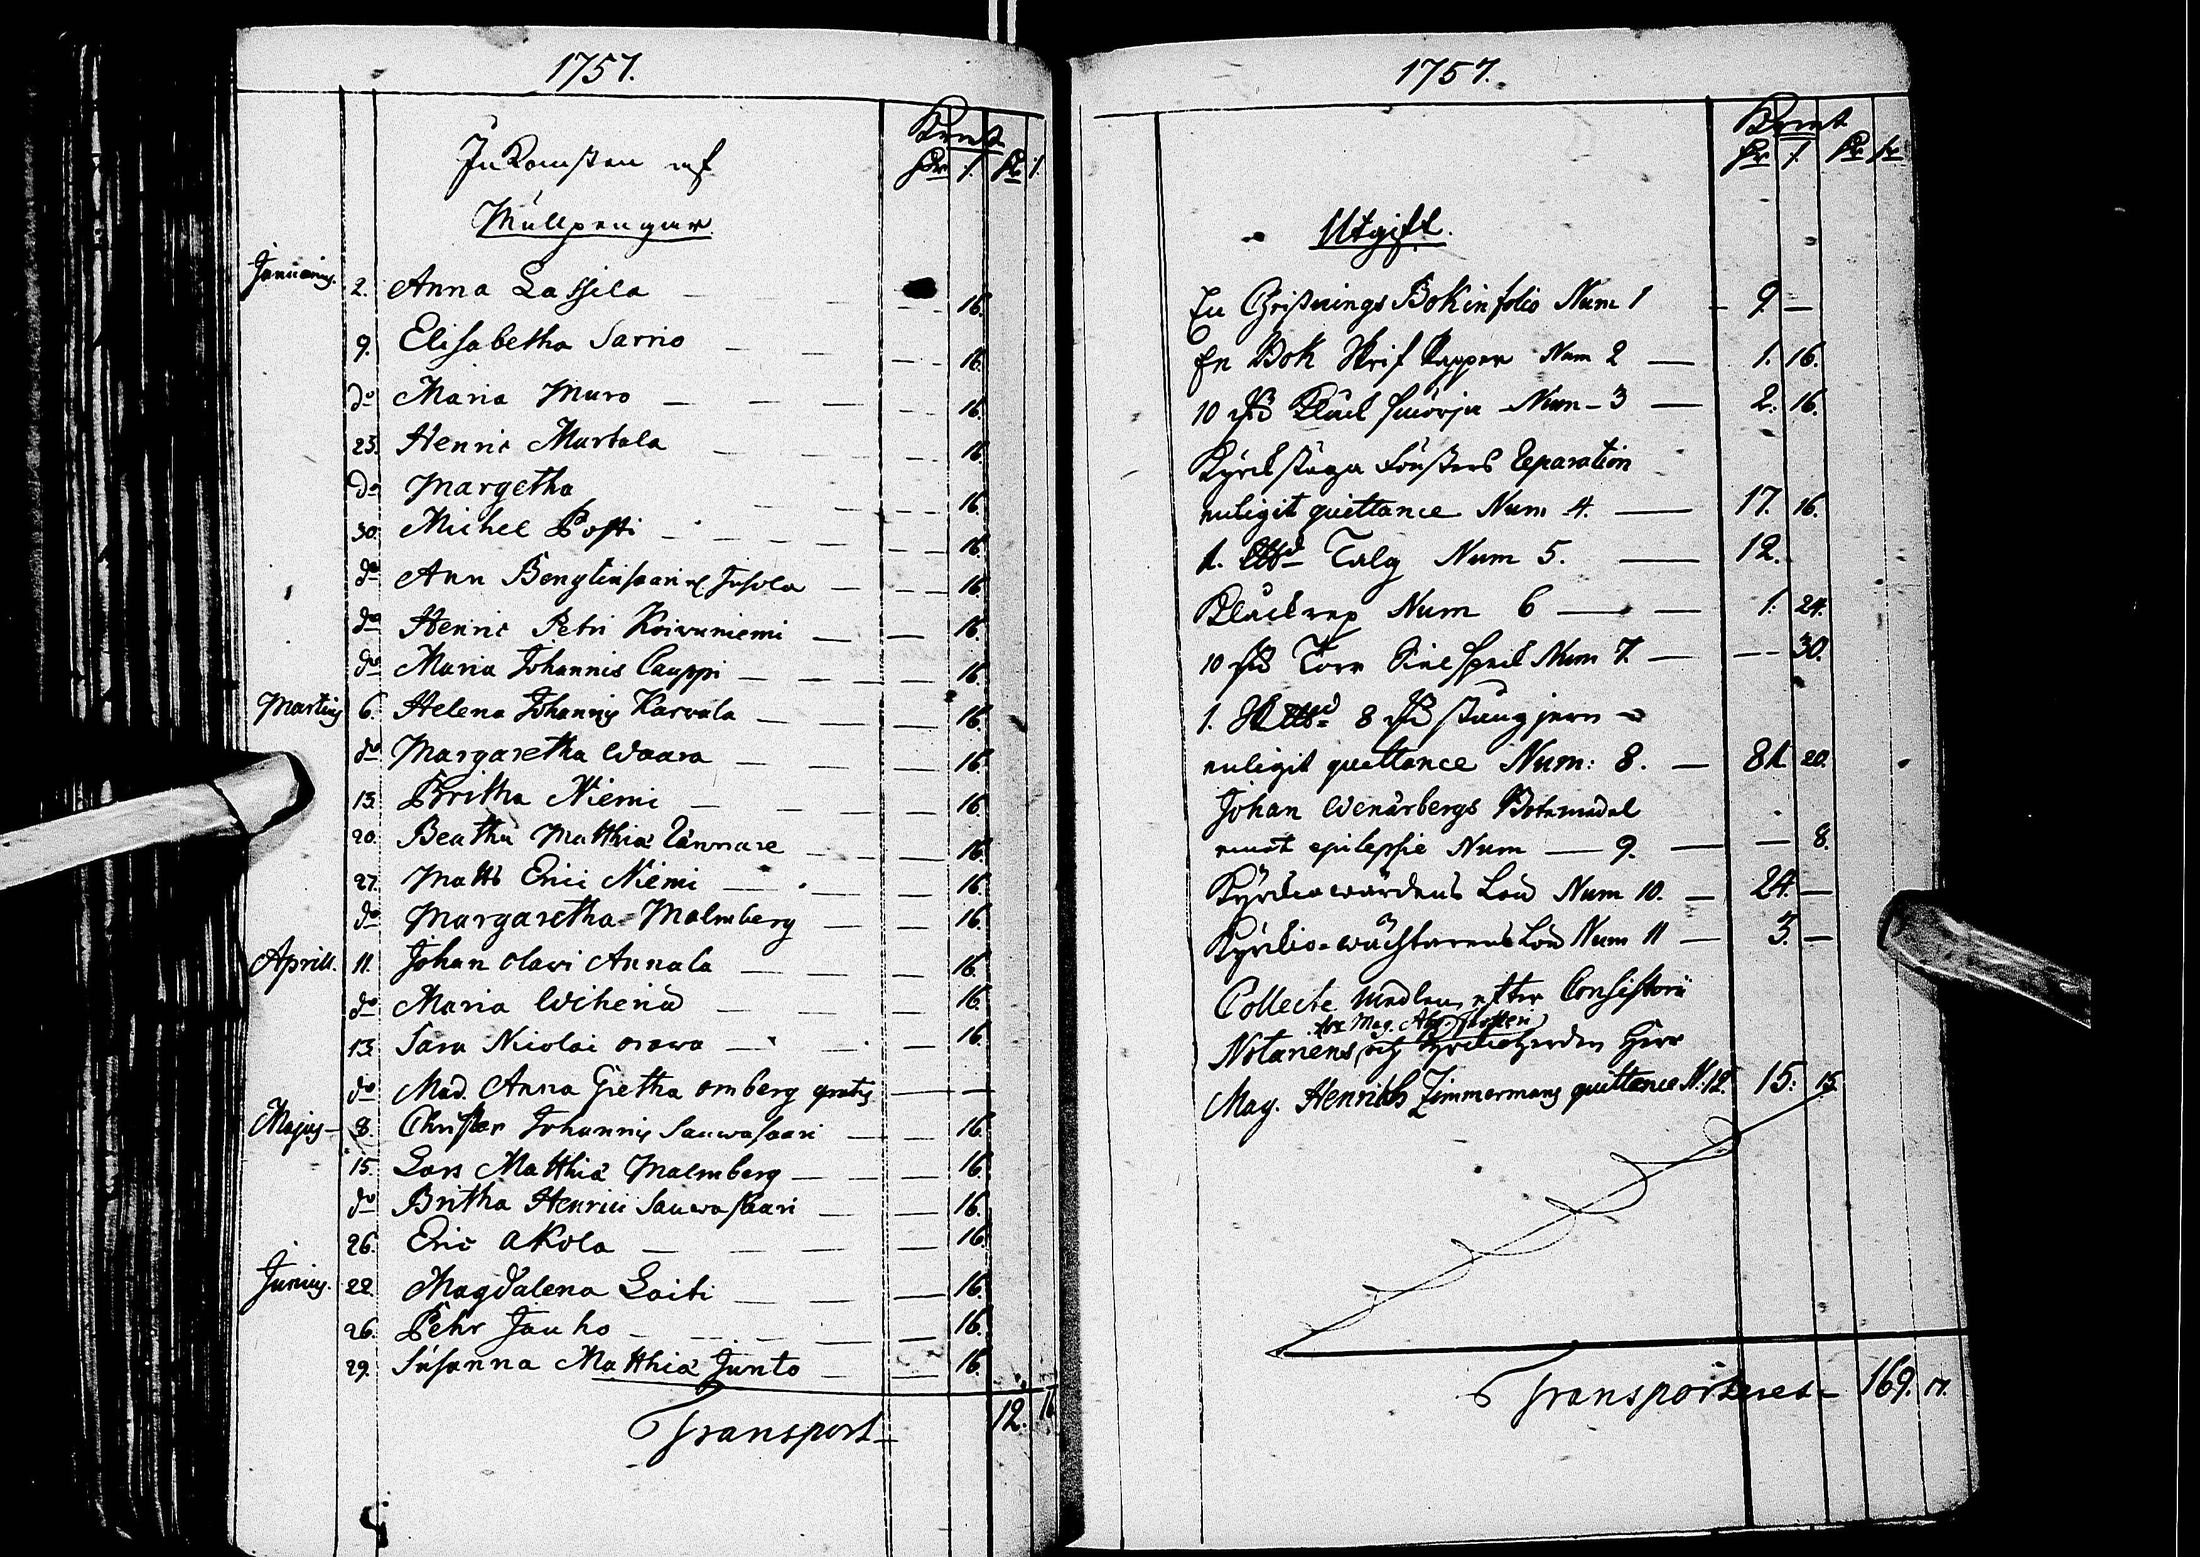 1757.
Inkomsten af
Mullpengar
Kpmt
Januarius. 2. Anna Lassila 16.
9. Elisabetha Sarrio 16.
do Maria Muro 16.
23. Henric Murtola 16.
do Margetha 16.
30. Michel Posti 16.
do Ann Bengtinsaari Jusola 16.
do Henric Petri Koivuniemi 16.
do Maria Johannis Cauppi 16.
Martius 6. Helena Johannis Karvala 16.
do Margaretha Waara 16.
13. Britha Niemi 16.
20. Beatha Matthiæ 16.
27. Matts Erici Niemi 16.
do Margaretha Malmberg 16.
Aprill. 11. Johan Olavi Annala 16.
do Maria 16.
13. Sara Nicolai Orawa 16.
do Mad. Anna Gretha Omberg gratis
Majus 8. Christer Johannis Sauwasaari 16.
15. Lars Matthiæ Malmberg 16.
do Britha Henrici Sauwasaari 16.
26. Eric Akola 16.
Junius. 22. Magdalena Laiti 16.
26. Pehr Jauho 16.
29. Susanna Matthiæ Junto 16.
Transport 12. 16
1757.
Kpmt
Utgift.
En Christnings Bok in folio Num 1 9. —
En Bok Skrif Papper Num. 2 1. 16.
10 Kläck smörja Num 3 2. 16.
Kyrckstuga Fönsters Reparation
enligit quittance Num 4. 17. 16.
1. Talg Num 5. 12.
Kläckrep Num 6 1. 24.
10 Num 7. 30.
1. 8 stångjern
enligit quittance Num: 8. 81. 20.
Johan Wenärbergs Botemedel
emot epilepsie Num 9. — 8.
Kyrckiowärdens Lön Num 10. 24. —
Kyrckio-wächtarens Lön Num 11 3. —
Collecte Medlen efter Consistorii
Notariens och Kyrckioherden Herr
Mag. Henrich Zimmermans quittance N. 12. 15. 15.
Transporteret 169. 17.